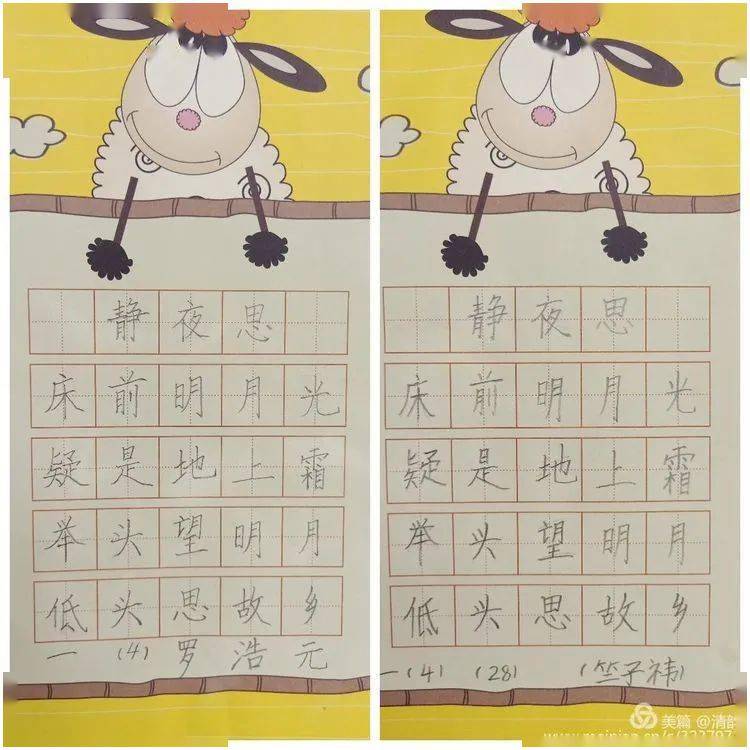 静夜思
床前明月光
疑是地上霜
举头望明月
低头思故乡
一 (4) 罗浩元
静夜思
床前明月光
疑是地上霜
举头望明月
低头思故乡
一(4) (28) (竺子祎)
美篇 @清韵